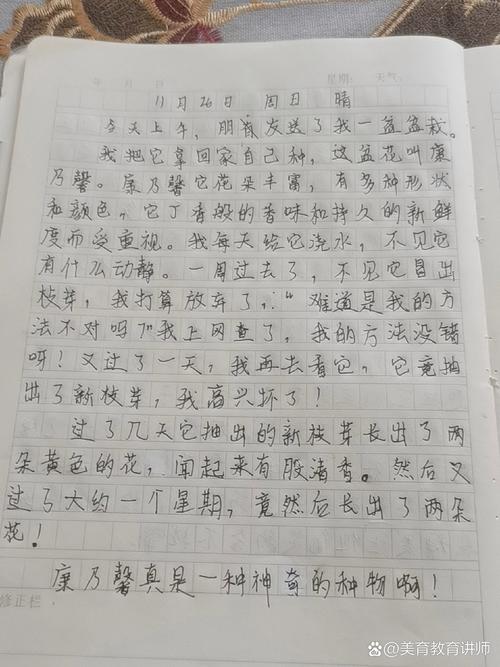 年 月 日 星期: 天气:
11月26日 周日 晴
今天上午，朋友发送了我一盆盆栽。
我把它拿回家自己种，这盆花叫康
乃馨。康乃馨它花朵丰富，有多种形状
和颜色，它丁香般的香味和持久的新鲜
度而受重视。我每天给它浇水，不见它
有什么动静。一周过去了，不见它冒出
枝芽，我打算放弃了，“难道是我的方
法不对吗？”我上网查了，我的方法没错
呀！又过了一天，我再去看它，它竟抽
出了新枝芽，我高兴坏了！
过了几天它抽出的新枝芽长出了两
朵黄色的花，闻起来有股清香。然后又
过了大约一个星期，竟然后长出了两朵
花！
康乃馨真是一种神奇的种物啊！
修正栏
@美育教育讲师